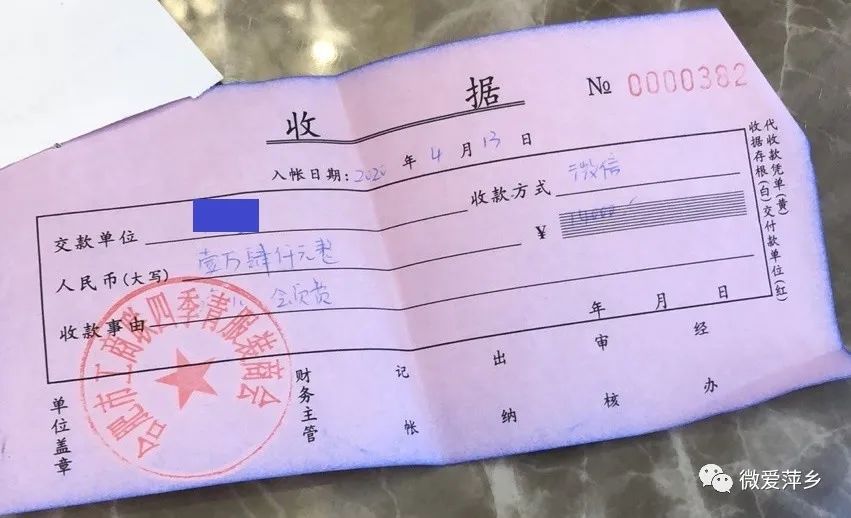 收 据
№ 0000382
入帐日期：2020 年 4 月 13 日
交款单位
收款方式 微信
人民币(大写) 壹万肆仟元整
¥ 14000
收款事由 会员费
年 月 日
单位盖章
财务主管
记帐
出纳
审核
经办
合肥市工商联四季青服装商会
代收款凭单(黄)
收据存根(白)交付款单位(红)
微爱萍乡